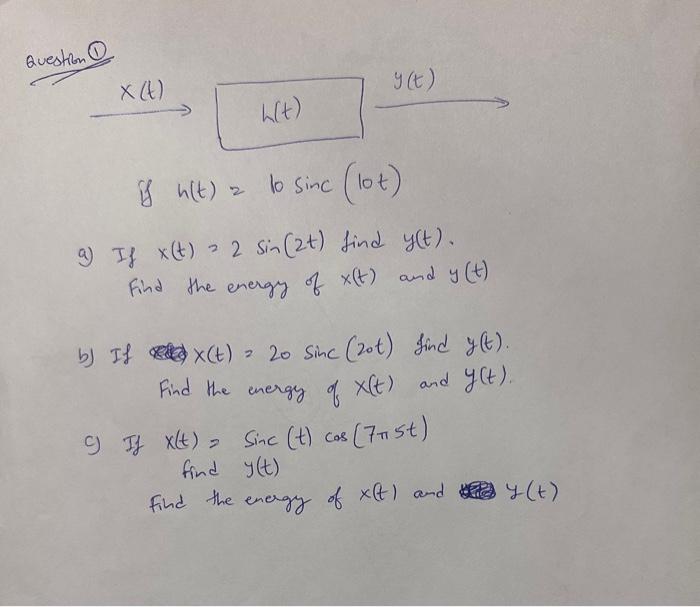 Question ①
x(t)
h(t)
y(t)
If h(t) = 10 sinc (10t)
a) If x(t) = 2 sin(2t) find y(t).
Find the energy of x(t) and y(t)
b) If x(t) = 20 sinc (20t) find y(t).
Find the energy of x(t) and y(t).
c) If x(t) = sinc (t) cos (7π5t)
find y(t)
Find the energy of x(t) and y(t)